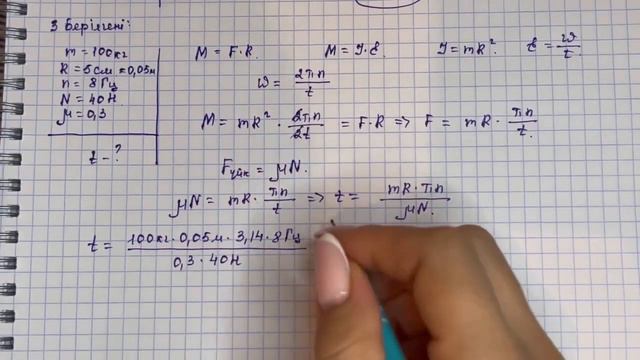 3 Берілгені:
m = 100кг
R = 5см = 0,05м
n = 8 Гц
N = 40Н
μ = 0,3
t - ?
M = F·R. M = J·ε. J = mR². ε = ω/t.
ω = 2πn/t
M = mR² · 2πn/2t = F·R => F = mR · πn/t.
Fүйк = μN.
μN = mR · πn/t => t = mR·πn/μN.
t = 100кг · 0,05м · 3,14 · 8Гц / 0,3 · 40Н